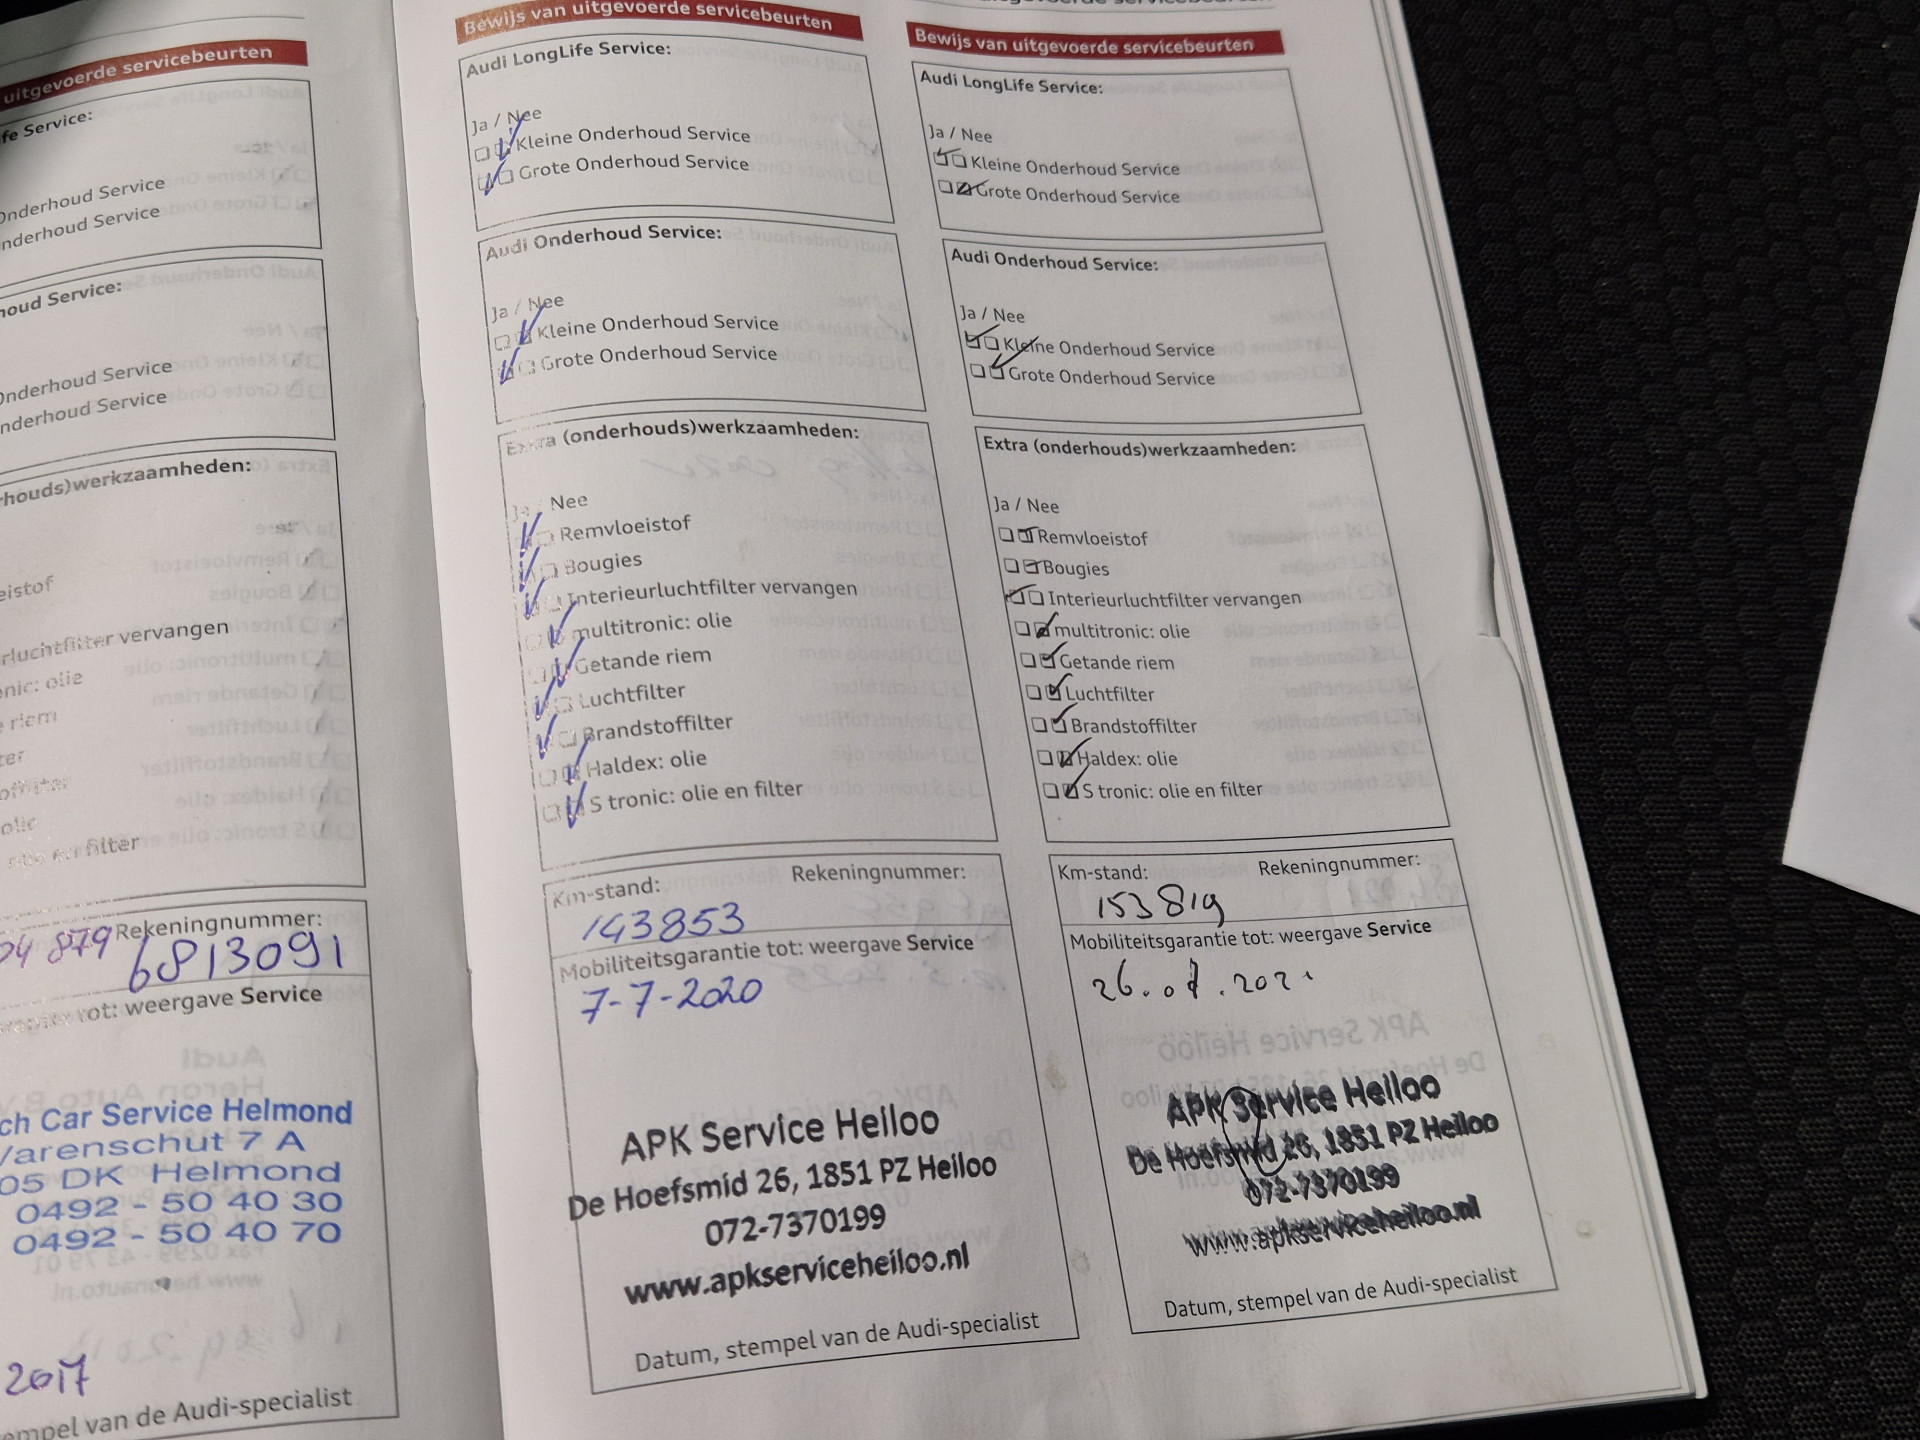 uitgevoerde servicebeurten
fe Service:
Onderhoud Service
nderhoud Service
houd Service:
Onderhoud Service
nderhoud Service
rhouds)werkzaamheden:
eistof
rluchtfilter vervangen
nic: olie
e riem
ter
offilter
olie
filter
Rekeningnummer:
04 879
6813091
tot: weergave Service
ch Car Service Helmond
Varenschut 7 A
05 DK Helmond
0492 - 50 40 30
0492 - 50 40 70
2017
tempel van de Audi-specialist
Bewijs van uitgevoerde servicebeurten
Audi LongLife Service:
Ja / Nee
Kleine Onderhoud Service
Grote Onderhoud Service
Audi Onderhoud Service:
Ja / Nee
Kleine Onderhoud Service
Grote Onderhoud Service
Extra (onderhouds)werkzaamheden:
Ja / Nee
Remvloeistof
Bougies
Interieurluchtfilter vervangen
multitronic: olie
Getande riem
Luchtfilter
Brandstoffilter
Haldex: olie
S tronic: olie en filter
Km-stand:
Rekeningnummer:
143853
Mobiliteitsgarantie tot: weergave Service
7-7-2020
APK Service Heiloo
De Hoefsmid 26, 1851 PZ Heiloo
072-7370199
www.apkserviceheiloo.nl
Datum, stempel van de Audi-specialist
Bewijs van uitgevoerde servicebeurten
Audi LongLife Service:
Ja / Nee
Kleine Onderhoud Service
Grote Onderhoud Service
Audi Onderhoud Service:
Ja / Nee
Kleine Onderhoud Service
Grote Onderhoud Service
Extra (onderhouds)werkzaamheden:
Ja / Nee
Remvloeistof
Bougies
Interieurluchtfilter vervangen
multitronic: olie
Getande riem
Luchtfilter
Brandstoffilter
Haldex: olie
S tronic: olie en filter
Km-stand:
Rekeningnummer:
153819
Mobiliteitsgarantie tot: weergave Service
APK Service Heiloo
De Hoefsmid 26, 1851 PZ Heiloo
072-7370199
www.apkserviceheiloo.nl
Datum, stempel van de Audi-specialist